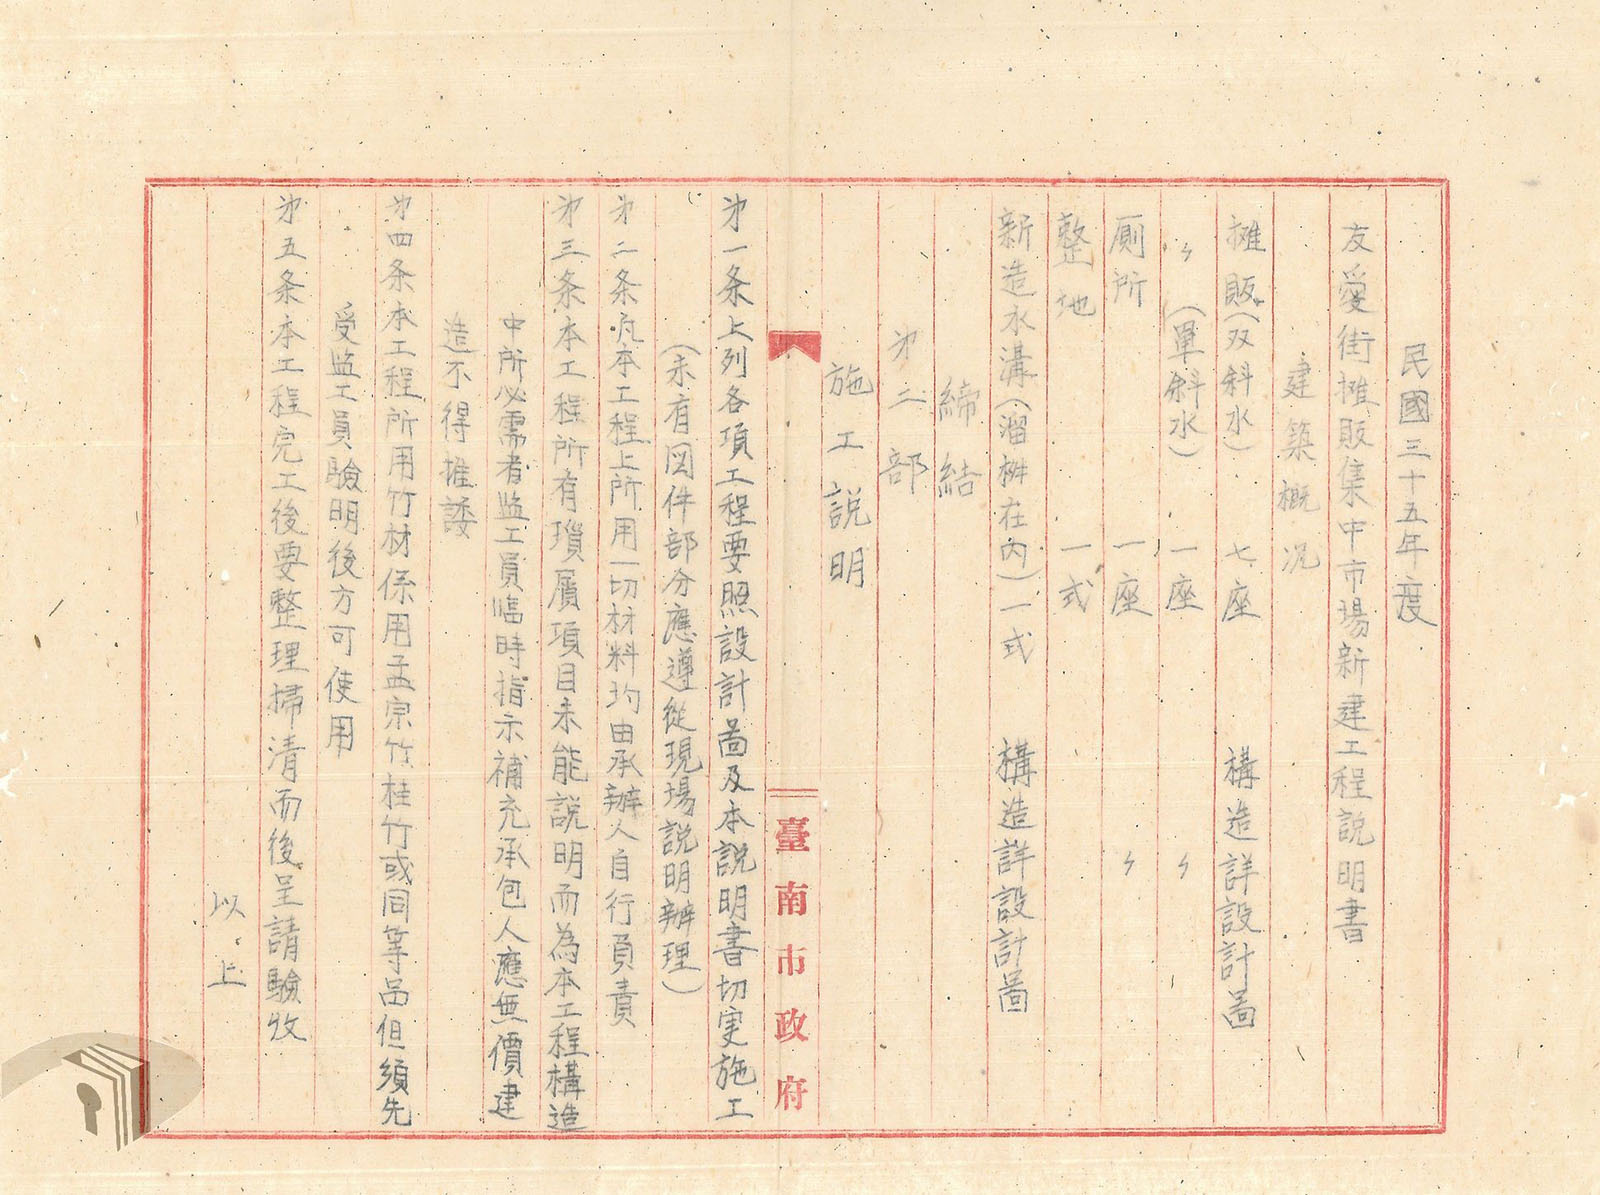 民國三十五年度
友愛街攤販集中市場新建工程說明書
建築概況
攤販(双斜水) 七座 構造詳設計啚
〃 (單斜水) 一座 〃
厠所 一座 〃
整地 一式
新造水溝(溜桝在内)一式 構造詳設計啚
締結
㐧二部
施工説明
臺南市政府
㐧一条上列各項工程要照設計啚及本説明書切実施工
(未有図件部分應遵從現場説明辦理)
㐧二条凡本工程上所用一切材料均由承辦人自行負責
㐧三条本工程所有瑣屑項目未能説明而為本工程構造
中所必需者監工員臨時指示補充承包人應無價建
造不得推諉
㐧四条本工程所用竹材係用孟宗竹桂竹或同等品但須先
受監工員驗明後方可使用
㐧五条本工程完工後要整理掃清而後呈請驗收
以上